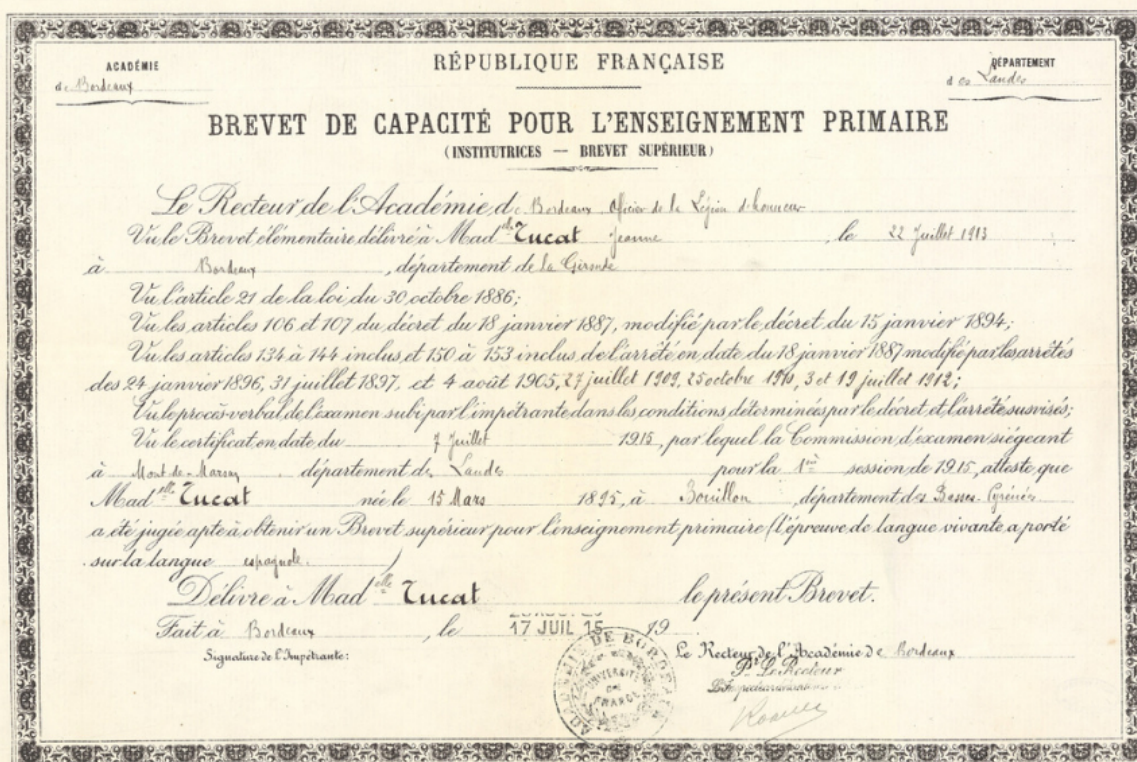 ACADÉMIE
de Bordeaux
RÉPUBLIQUE FRANÇAISE
DÉPARTEMENT
des Landes
BREVET DE CAPACITÉ POUR L'ENSEIGNEMENT PRIMAIRE
(INSTITUTRICES — BREVET SUPÉRIEUR)
Le Recteur de l'Académie de Bordeaux, Officier de la Légion d'honneur
Vu le Brevet élémentaire délivré à Mad elle Tucat Jeanne, le 22 Juillet 1913
à Bordeaux, département de la Gironde
Vu l'article 21 de la loi du 30 octobre 1886;
Vu les articles 106 et 107 du décret du 18 janvier 1887, modifié par le décret du 15 janvier 1894;
Vu les articles 134 à 144 inclus et 150 à 153 inclus de l'arrêté en date du 18 janvier 1887 modifié par les arrêtés
des 24 janvier 1896, 31 juillet 1897, et 4 août 1905, 27 juillet 1909, 25 octobre 1910, 3 et 19 juillet 1912;
Vu le procès-verbal de l'examen subi par l'impétrante dans les conditions déterminées par le décret et l'arrêté susvisés;
Vu le certificat en date du 7 Juillet 1915, par lequel la Commission d'examen siégeant
à Mont-de-Marsan, département de Landes pour la 1ère session de 1915, atteste que
Mad elle Tucat née le 15 Mars 1895, à Bouillon, département des Basses-Pyrénées
a été jugée apte à obtenir un Brevet supérieur pour l'enseignement primaire (l'épreuve de langue vivante a porté
sur la langue espagnole.)
Délivre à Mad elle Tucat le présent Brevet.
Fait à Bordeaux, le 17 JUIL 15 19
Signature de l'Impétrante:
Le Recteur de l'Académie de Bordeaux
Pr Le Recteur
ACADÉMIE DE BORDEAUX
UNIVERSITÉ
DE
FRANCE